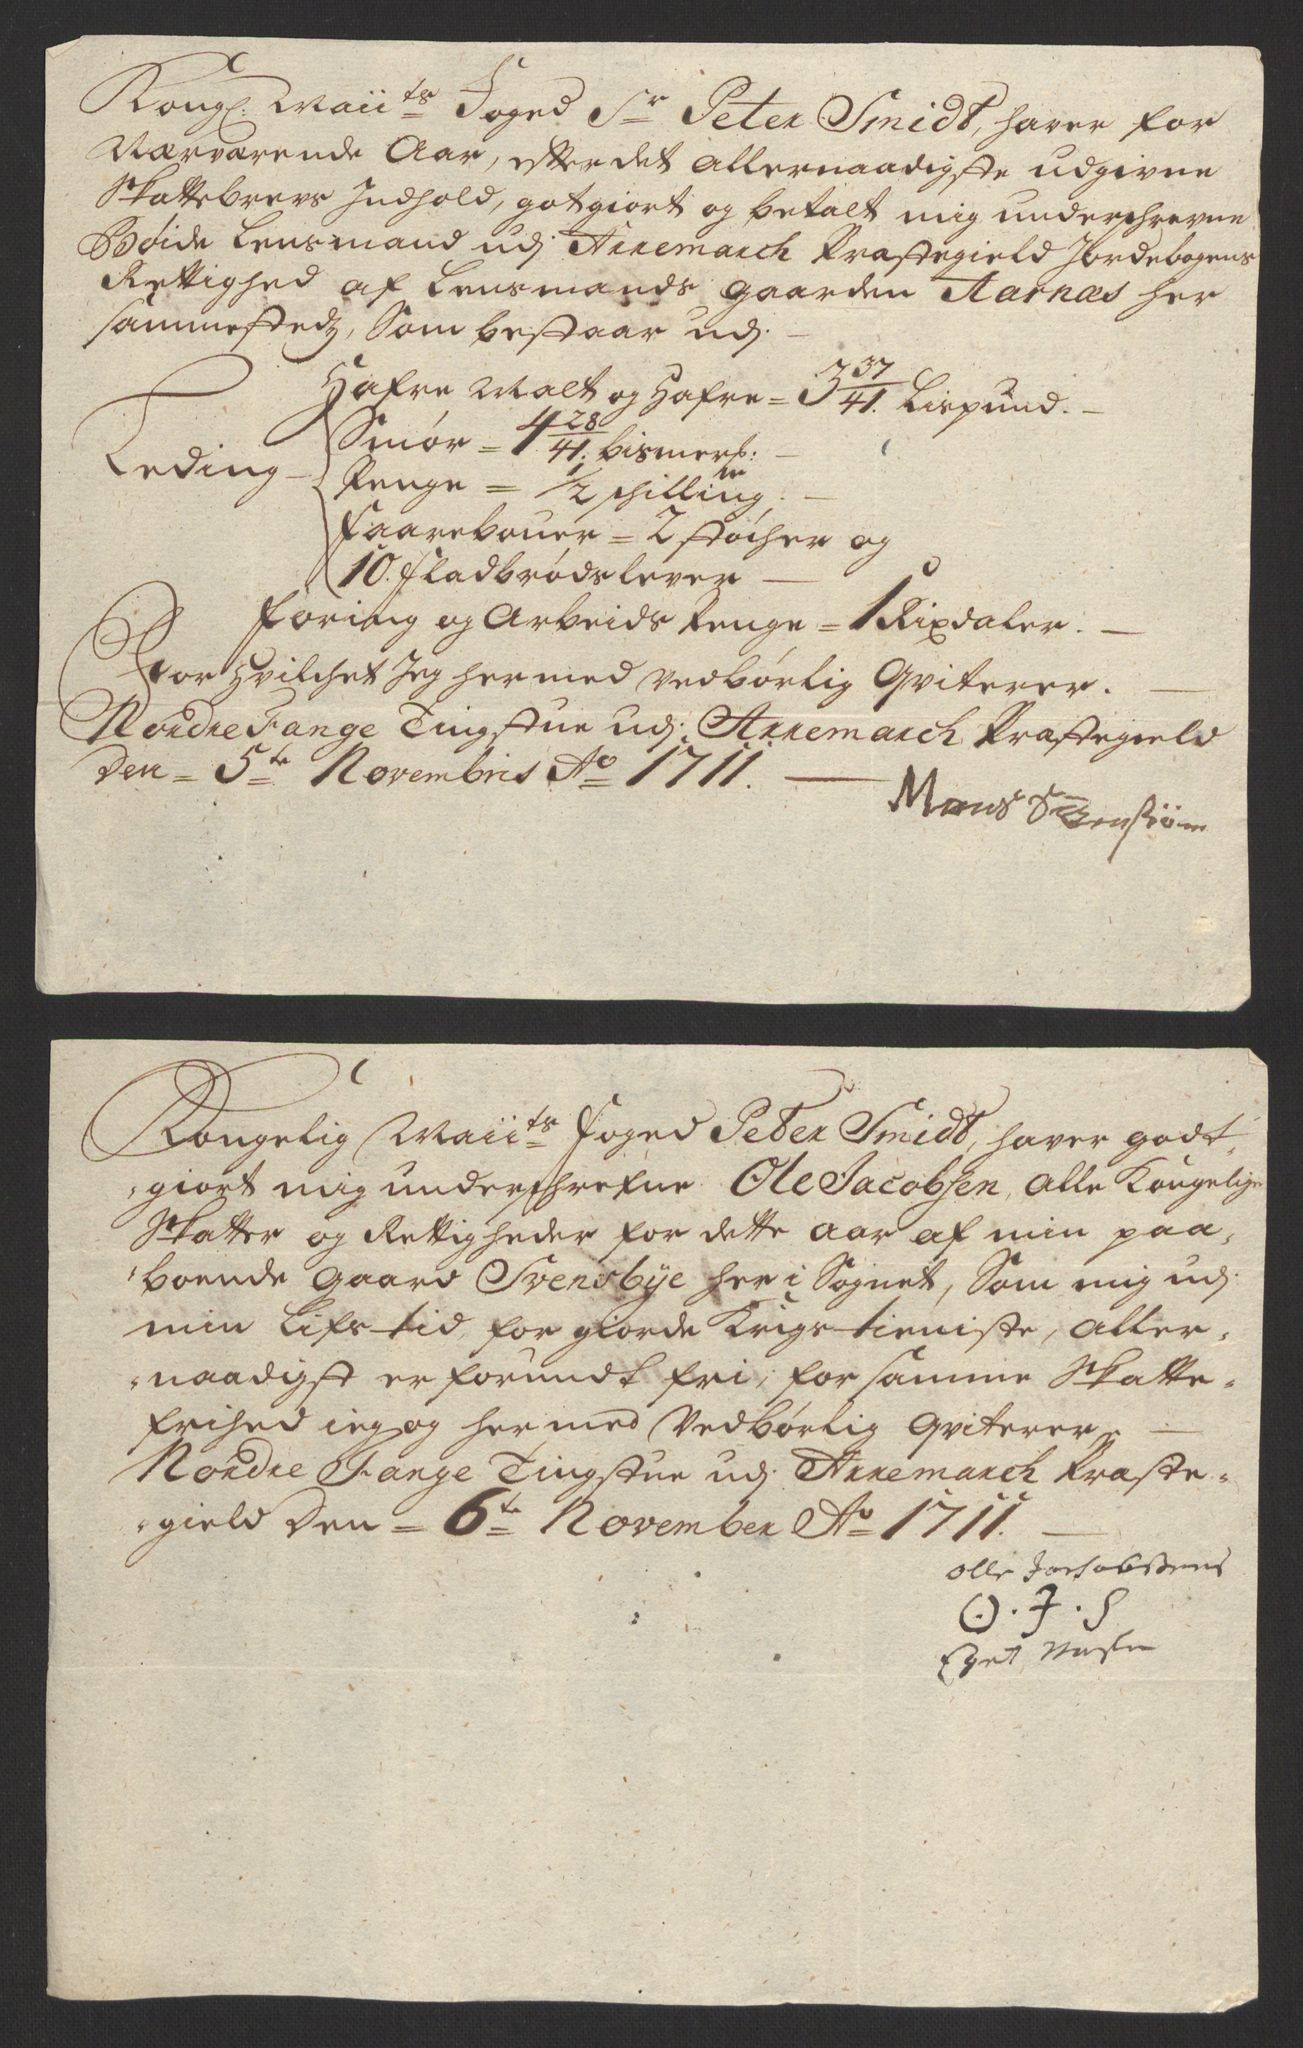 Kongl. Maiits Foged Sr Peter Smidt, haver for
Nærværende Aar, efter det allernaadigste udgivne
Skattebrevs Indhold, gotgiort og betalt mig underschrevne
Böide Lensmand udj Arremarch Præstegield Jordebogens
Rettighed af Lensmands gaarden Aarnæs her
sammestedz, Som bestaar udj. —
Hafre Malt og Hafre = 3 37/41. Lispund. —
Leding — Smör = 1 28/41. bismerp: —
Penge = 1/2 schilling. —
Faarebouer = 2 støcher og
10. fladbrøds lever —
Foring og Arbeids Penge = 1 Rixdaler. —
For Hvilchet Jeg hermed vedbörlig Qviterer. —
Nordre Fange Tingstue udj. Arremarch Præstegield
Den = 5te Novembris Ao 1711. —
Mons
Kongelig Maiits Foged Peter Smidt, haver godt-
giort mig underschrefne Ole Jacobsen, alle Kongelige
Skatter og Rettigheder for dette aar af min paa-
boende gaard Svensbye her i Sognet, Som mig udj
min Lifs-tid, for giorde Krigs-tieniste, aller-
naadigst er forundt fri, for samme Skatte-
frihed ieg og hermed Vedbörlig Qviterer, —
Nordre Fange Tingstue udj. Arremarch Præste-
gield Den = 6te November Ao 1711. —
Olle Jachobsens
O. J. S
Eget